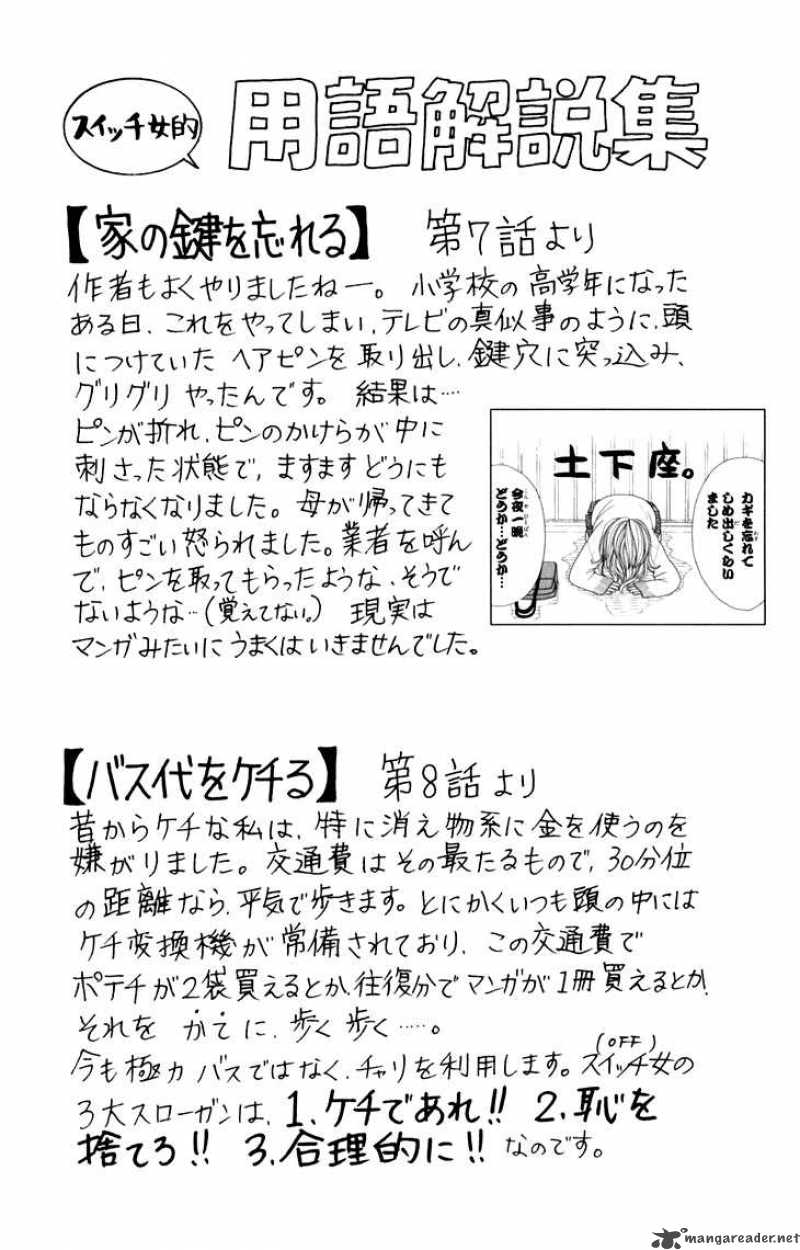 スイッチ女的
用語解説集
【家の鍵を忘れる】 第7話より
作者もよくやりましたねー。 小学校の高学年になった
ある日、これをやってしまい、テレビの真似事のように、頭
につけていた ヘアピンを取り出し、鍵穴に突っ込み、
グリグリ やったんです。 結果は…
ピンが折れ、ピンのかけらが中に
刺さった状態で、ますますどうにも
ならなくなりました。母が帰ってきて
ものすごい怒られました。業者を呼ん
で、ピンを取ってもらったような、そうで
ないような…(覚えてない。) 現実は
マンガみたいにうまくはいきませんでした。
カギを忘れて
しめ出しくらい
ました
土下座。
今夜一晩
どうか…どうか…
【バス代をケチる】 第8話より
昔からケチな私は、特に消え物系に金を使うのを
嫌がりました。交通費はその最たるもので、30分位
の距離なら、平気で歩きます。とにかくいつも頭の中には
ケチ変換機が常備されており、この交通費で
ポテチが2袋買えるとか、往復分でマンガが1冊買えるとか、
それを かてに、歩く歩く……。
今も極力バスではなく、チャリを利用します。スイッチ女(OFF)の
3大スローガンは、1、ケチであれ!! 2、恥を
捨てろ!! 3、合理的に!! なのです。
mangareader.net